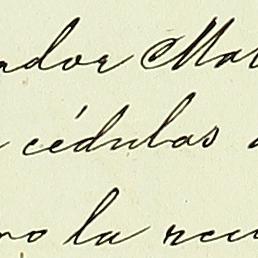 ador Mat
cédulas
no la recu